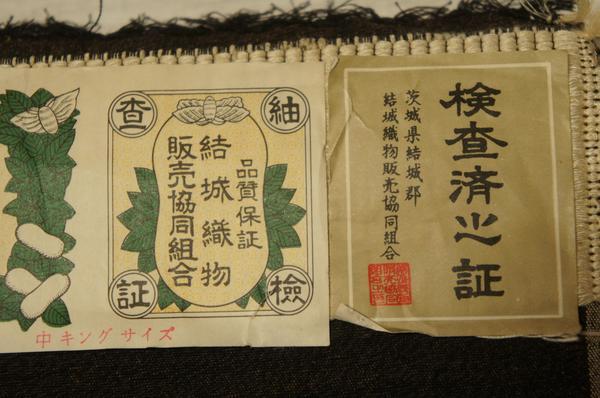 検査済之証
茨城県結城郡
結城織物販売協同組合
紬
検
査
証
品質保証
結城織物
販売協同組合
中キングサイズ